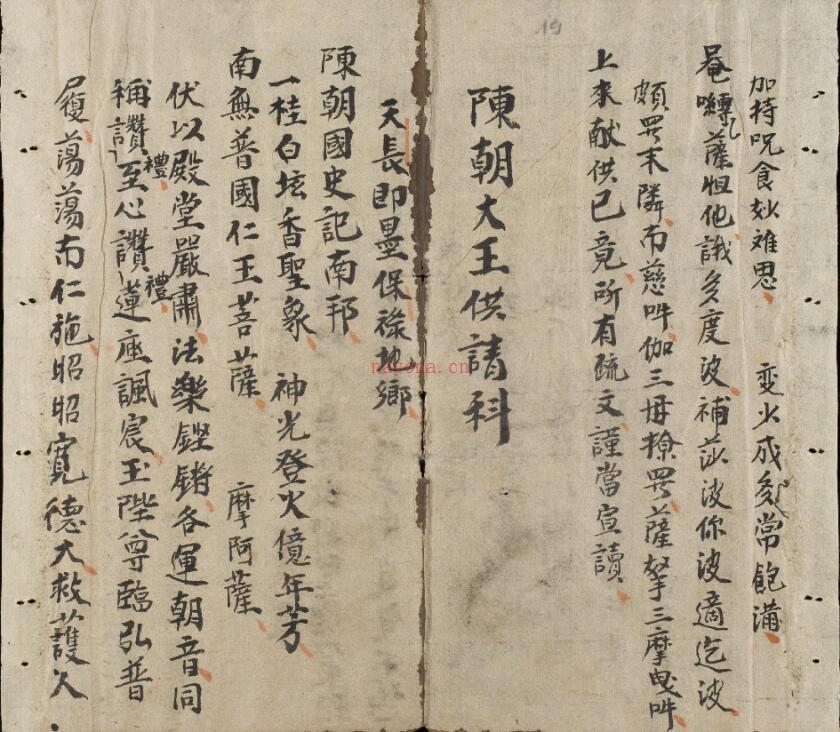 19
加持呪食妙难思　变少成多常飽满
唵囀乚薩怛他誐多度波補莎波你波適迄波
頗罗末隣而慈吽伽三毋捺罗薩拏三摩曳吽
上來献供已竟所有疏文謹當宣讀
陳朝大王供請科
天長即墨保祿地鄉
陳朝國史記南邦
一桂白坛香聖象　神光登火億年芳
南無普國仁王菩薩　摩阿薩
伏以殿堂嚴肅法樂鏗鏘各運朝音同
稱讚禮至心讚禮蓮座諷宸玉陛尊臨弘普
履蕩蕩而仁施昭昭寬德大救護人
nayona.cn